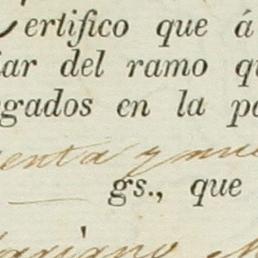 Certifico que á
iar del ramo qu
grados en la po
enta y nue
gs., que
Mariano